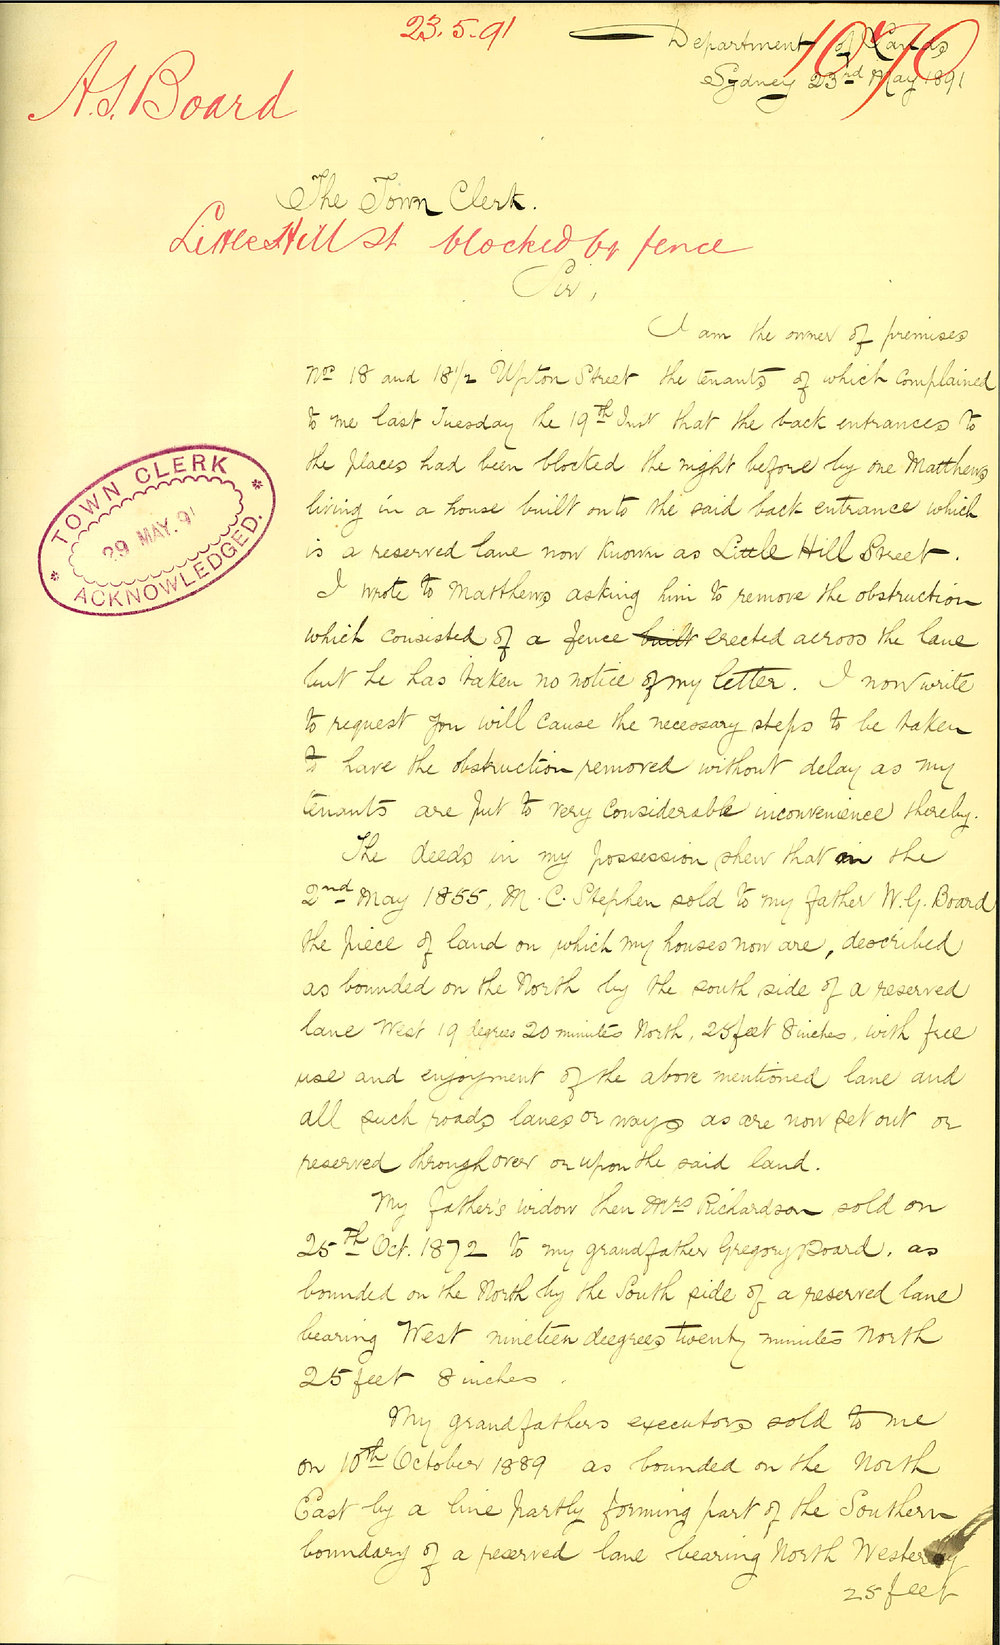 23.5.91
1070
Department of Lands
Sydney 23rd May 1891
A.S. Board
The Town Clerk.
Little Hill St blocked by fence
Sir,
I am the owner of premises
Nos 18 and 18 1/2 Upton Street the tenants of which complained
to me last Tuesday the 19th Inst that the back entrances to
the places had been blocked the night before by one Matthews
living in a house built on to the said back entrance which
is a reserved lane now known as Little Hill Street.
I wrote to Matthews asking him to remove the obstruction
which consisted of a fence built erected across the lane
but he has taken no notice of my letter. I now write
to request you will cause the necessary steps to be taken
to have the obstruction removed without delay as my
tenants are put to very considerable inconvenience thereby.
The deeds in my possession shew that on the
2nd May 1855, M. C. Stephen sold to my father W. G. Board
the piece of land on which my houses now are, described
as bounded on the North by the south side of a reserved
lane West 19 degrees 20 minutes North, 25 feet 8 inches, with free
use and enjoyment of the above mentioned lane and
all such roads lanes or ways as are now set out or
reserved through over or upon the said land.
My father's widow then Mrs Richardson sold on
25th Oct. 1872 to my grandfather Gregory Board, as
bounded on the North by the South side of a reserved lane
bearing West nineteen degrees twenty minutes North
25 feet 8 inches.
My grandfathers executors sold to me
on 10th October 1889 as bounded on the North
East by a line partly forming part of the Southern
boundary of a reserved lane bearing North Westerly
25 feet
TOWN CLERK
29 MAY. 91
ACKNOWLEDGED.